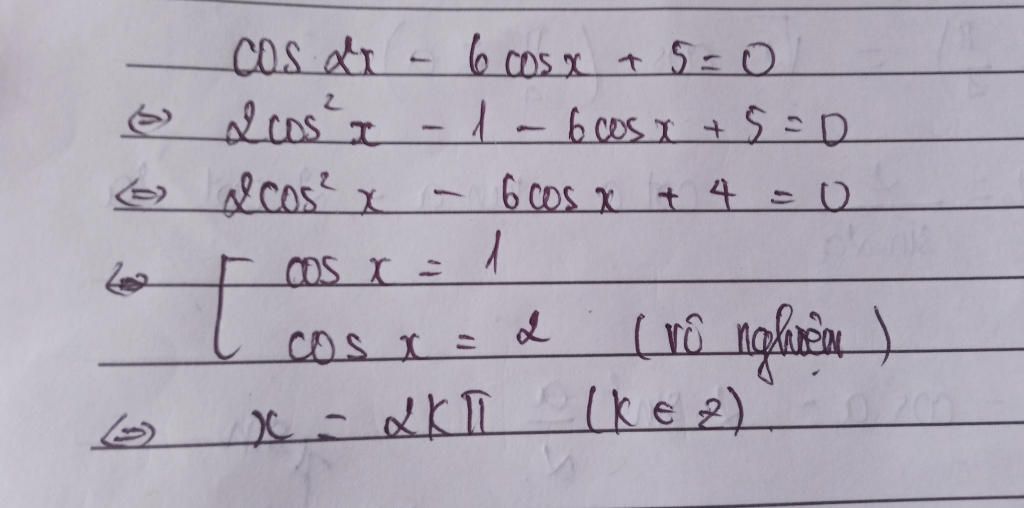 cos 2x - 6 cos x + 5 = 0
⇔ 2cos² x - 1 - 6 cos x + 5 = 0
⇔ 2cos² x - 6 cos x + 4 = 0
⇔ [ cos x = 1
cos x = 2 (vô nghiệm)
⇔ x = 2kπ (k ∈ z)